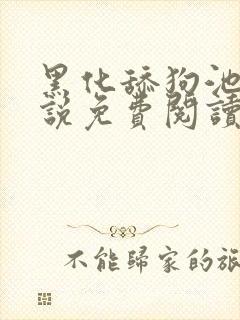 黑化舔狗池
說免費閱讀
不能歸家的旅